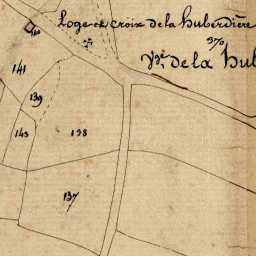 Loge et croix de la huberdière
370
Vge de la hub
141
139
143
138
137